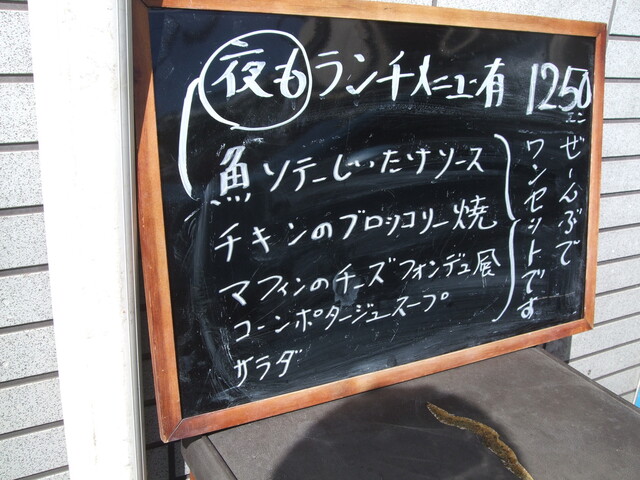 夜も ランチメニュー有 1250エン
魚ソテーしいたけソース
チキンのブロッコリー焼
マフィンのチーズフォンデュ風
コーンポタージュスープ
サラダ
ぜーんぶで
ワンセットです